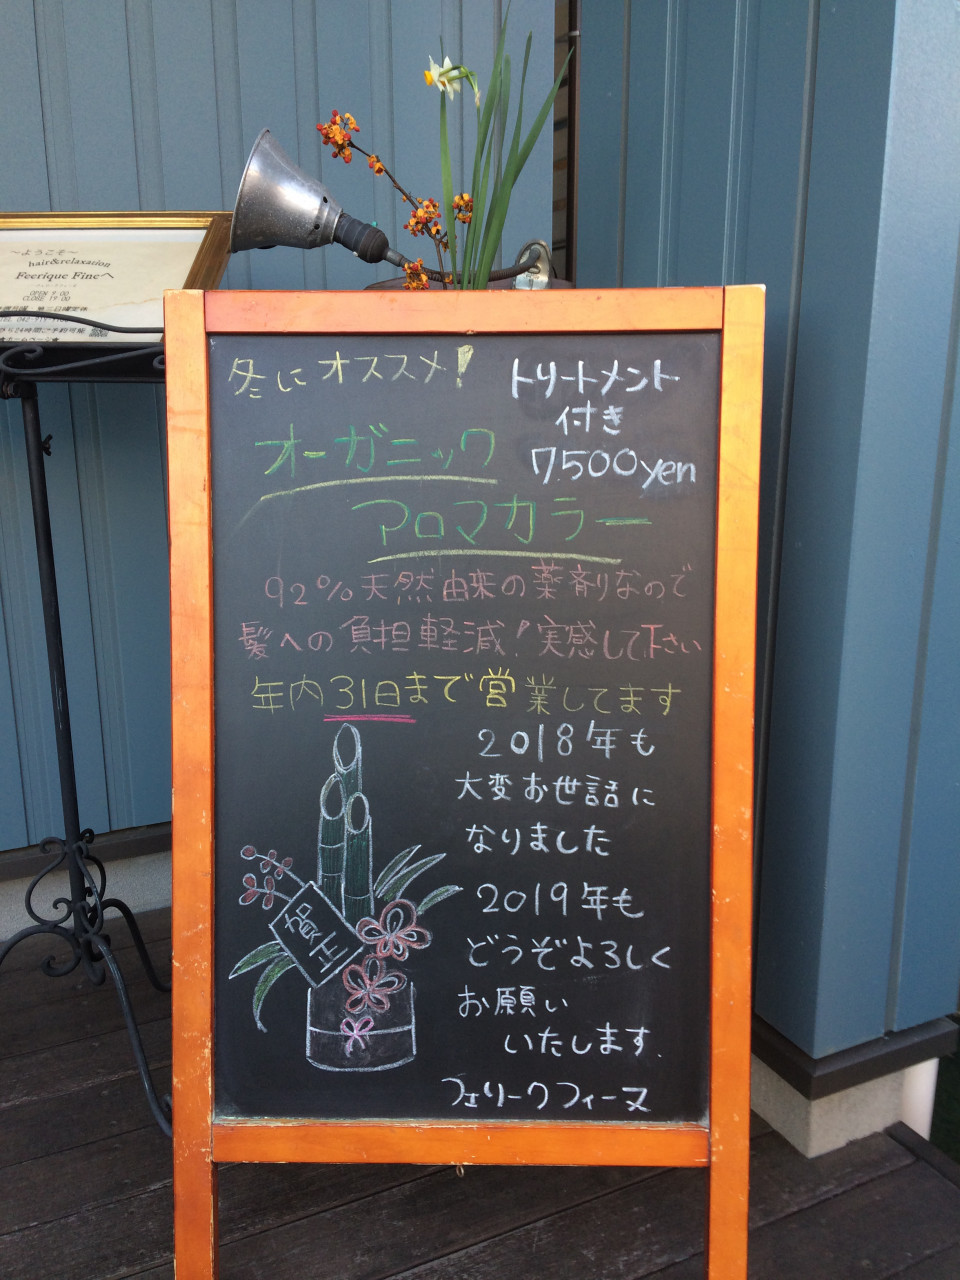 ～ようこそ～
hair&relaxation
Feerique Fineへ
OPEN 9:00
CLOSE 19:00
24時間ご予約可能
冬にオススメ!
トリートメント
付き
7.500yen
オーガニック
アロマカラー
92%天然由来の薬剤りなので
髪への負担軽減!実感して下さい
年内31日まで営業してます
2018年も
大変お世話に
なりました
2019年も
どうぞよろしく
お願い
いたします.
フェリークフィーヌ
賀正